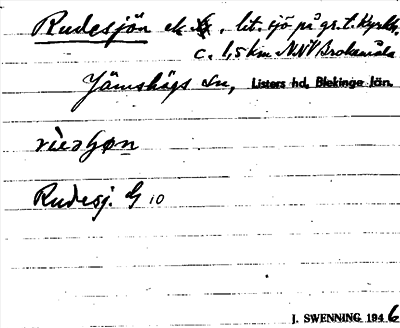 Rudesjön ek . lit. sjö på gr. t. Kyrkh.
c. 1,5 km NNV Brokamåla
Jämshögs sn, Listers hd, Blekinge län.
Rudesj. G 10
J. SWENNING 1946